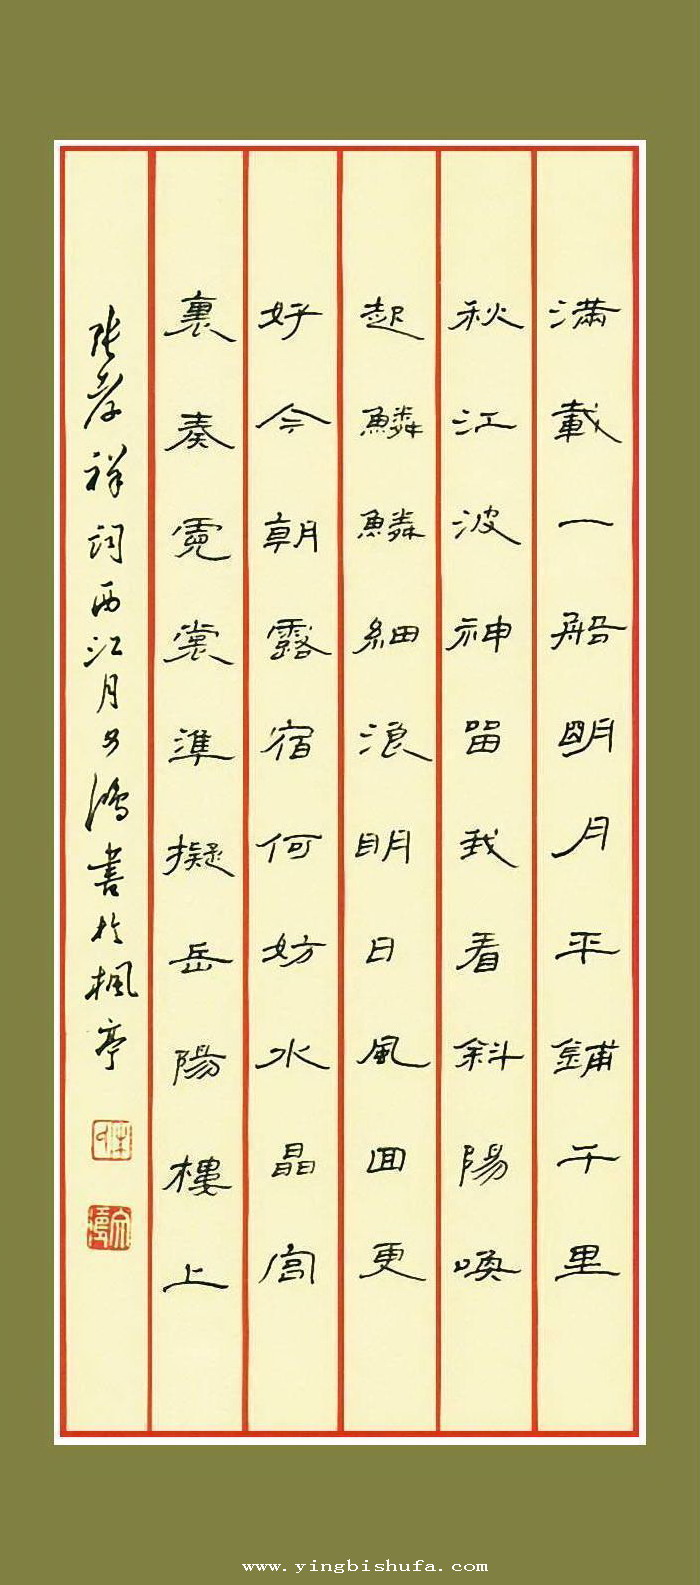 滿載一船明月平鋪千里
秋江波神留我看斜陽喚
起鱗鱗細浪明日風回更
好今朝露宿何妨水晶宮
裏奏霓裳準擬岳陽樓上
張孝祥詞西江月 鴻書於楓亭
www.yingbishufa.com